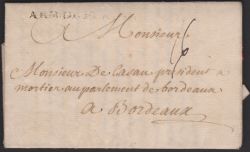 A Monsieur
Monsieur De Casau président a
mortier au parlement de bordeaux
a Bordeaux